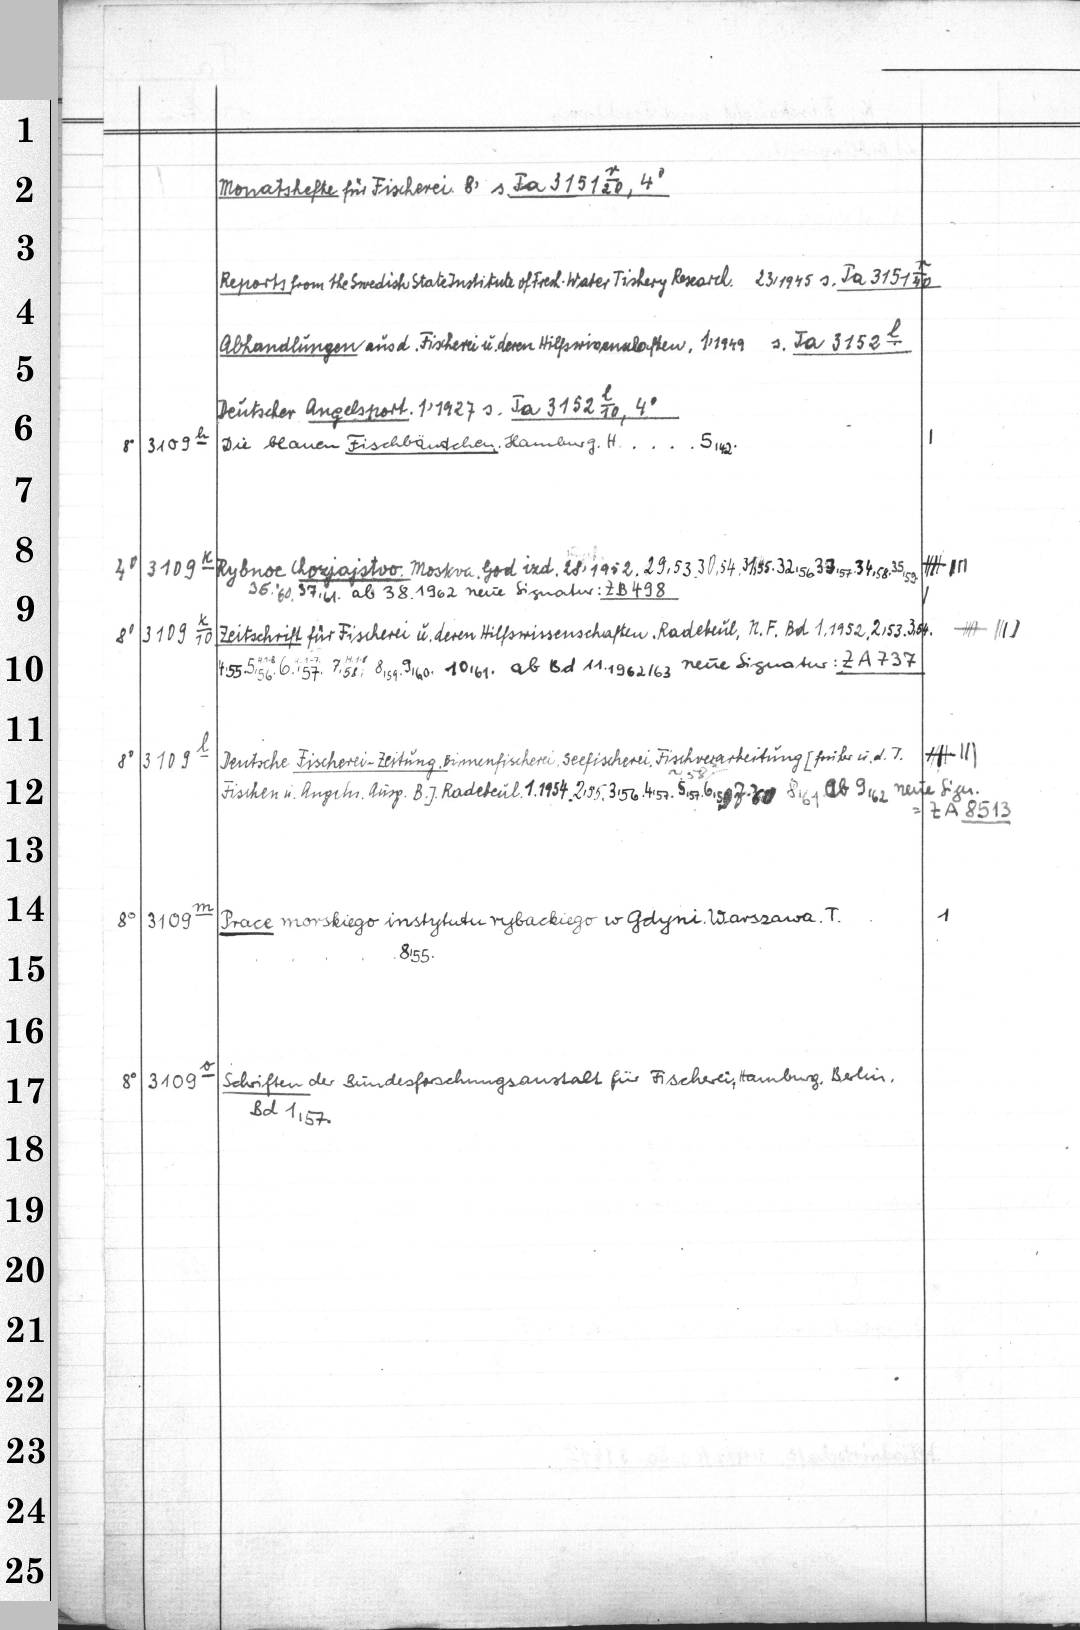 1
2
3
4
5
6
7
8
9
10
11
12
13
14
15
16
17
18
19
20
21
22
23
24
25
Monatshefte für Fischerei. 8° s. Ta 3151 r/20, 4°
Reports from the Swedish State Institute of Fresh-Water Fishery Research. 23,1945 s. Ta 3151 r/40
Abhandlungen aus d. Fischerei u. deren Hilfswissenschaften, 1,1949 s. Ta 3152 l
Deutscher Angelsport. 1,1927 s. Ta 3152 l/10, 4°
8° 3109 h Die blauen Fischbändchen. Hamburg. H. . . . . 5,42. I
4° 3109 k Rybnoe Chozjajstvo. Moskva. God izd. 28,1952. 29,53 30,54. 31,55. 32,56 33,57. 34,58. 35,59. IIII III
36,60. 37,61. ab 38.1962 neue Signatur: ZB 498 I
8° 3109 k/10 Zeitschrift für Fischerei u. deren Hilfswissenschaften. Radebeul, N.F. Bd 1,1952, 2,53. 3,54. IIII III
4,55. 5,56. 6,57. 7,58. 8,59. 9,60. 10,61. ab Bd 11.1962/63 neue Signatur: ZA 737
8° 3109 l Deutsche Fischerei-Zeitung. Binnenfischerei, Seefischerei, Fischverarbeitung [früher u. d. T. IIII III
Fischen u. Angeln. Ausg. B.]. Radebeul. 1.1954. 2,55. 3,56. 4,57. 6,59 7.60 8,61 ab 9,62 neue Sign.
= ZA 8513
8° 3109 m Prace morskiego instytutu rybackiego w Gdyni. Warszawa. T. 1
. . . . 8,55.
8° 3109 o Schriften der Bundesforschungsanstalt für Fischerei, Hamburg. Berlin.
Bd 1,57.